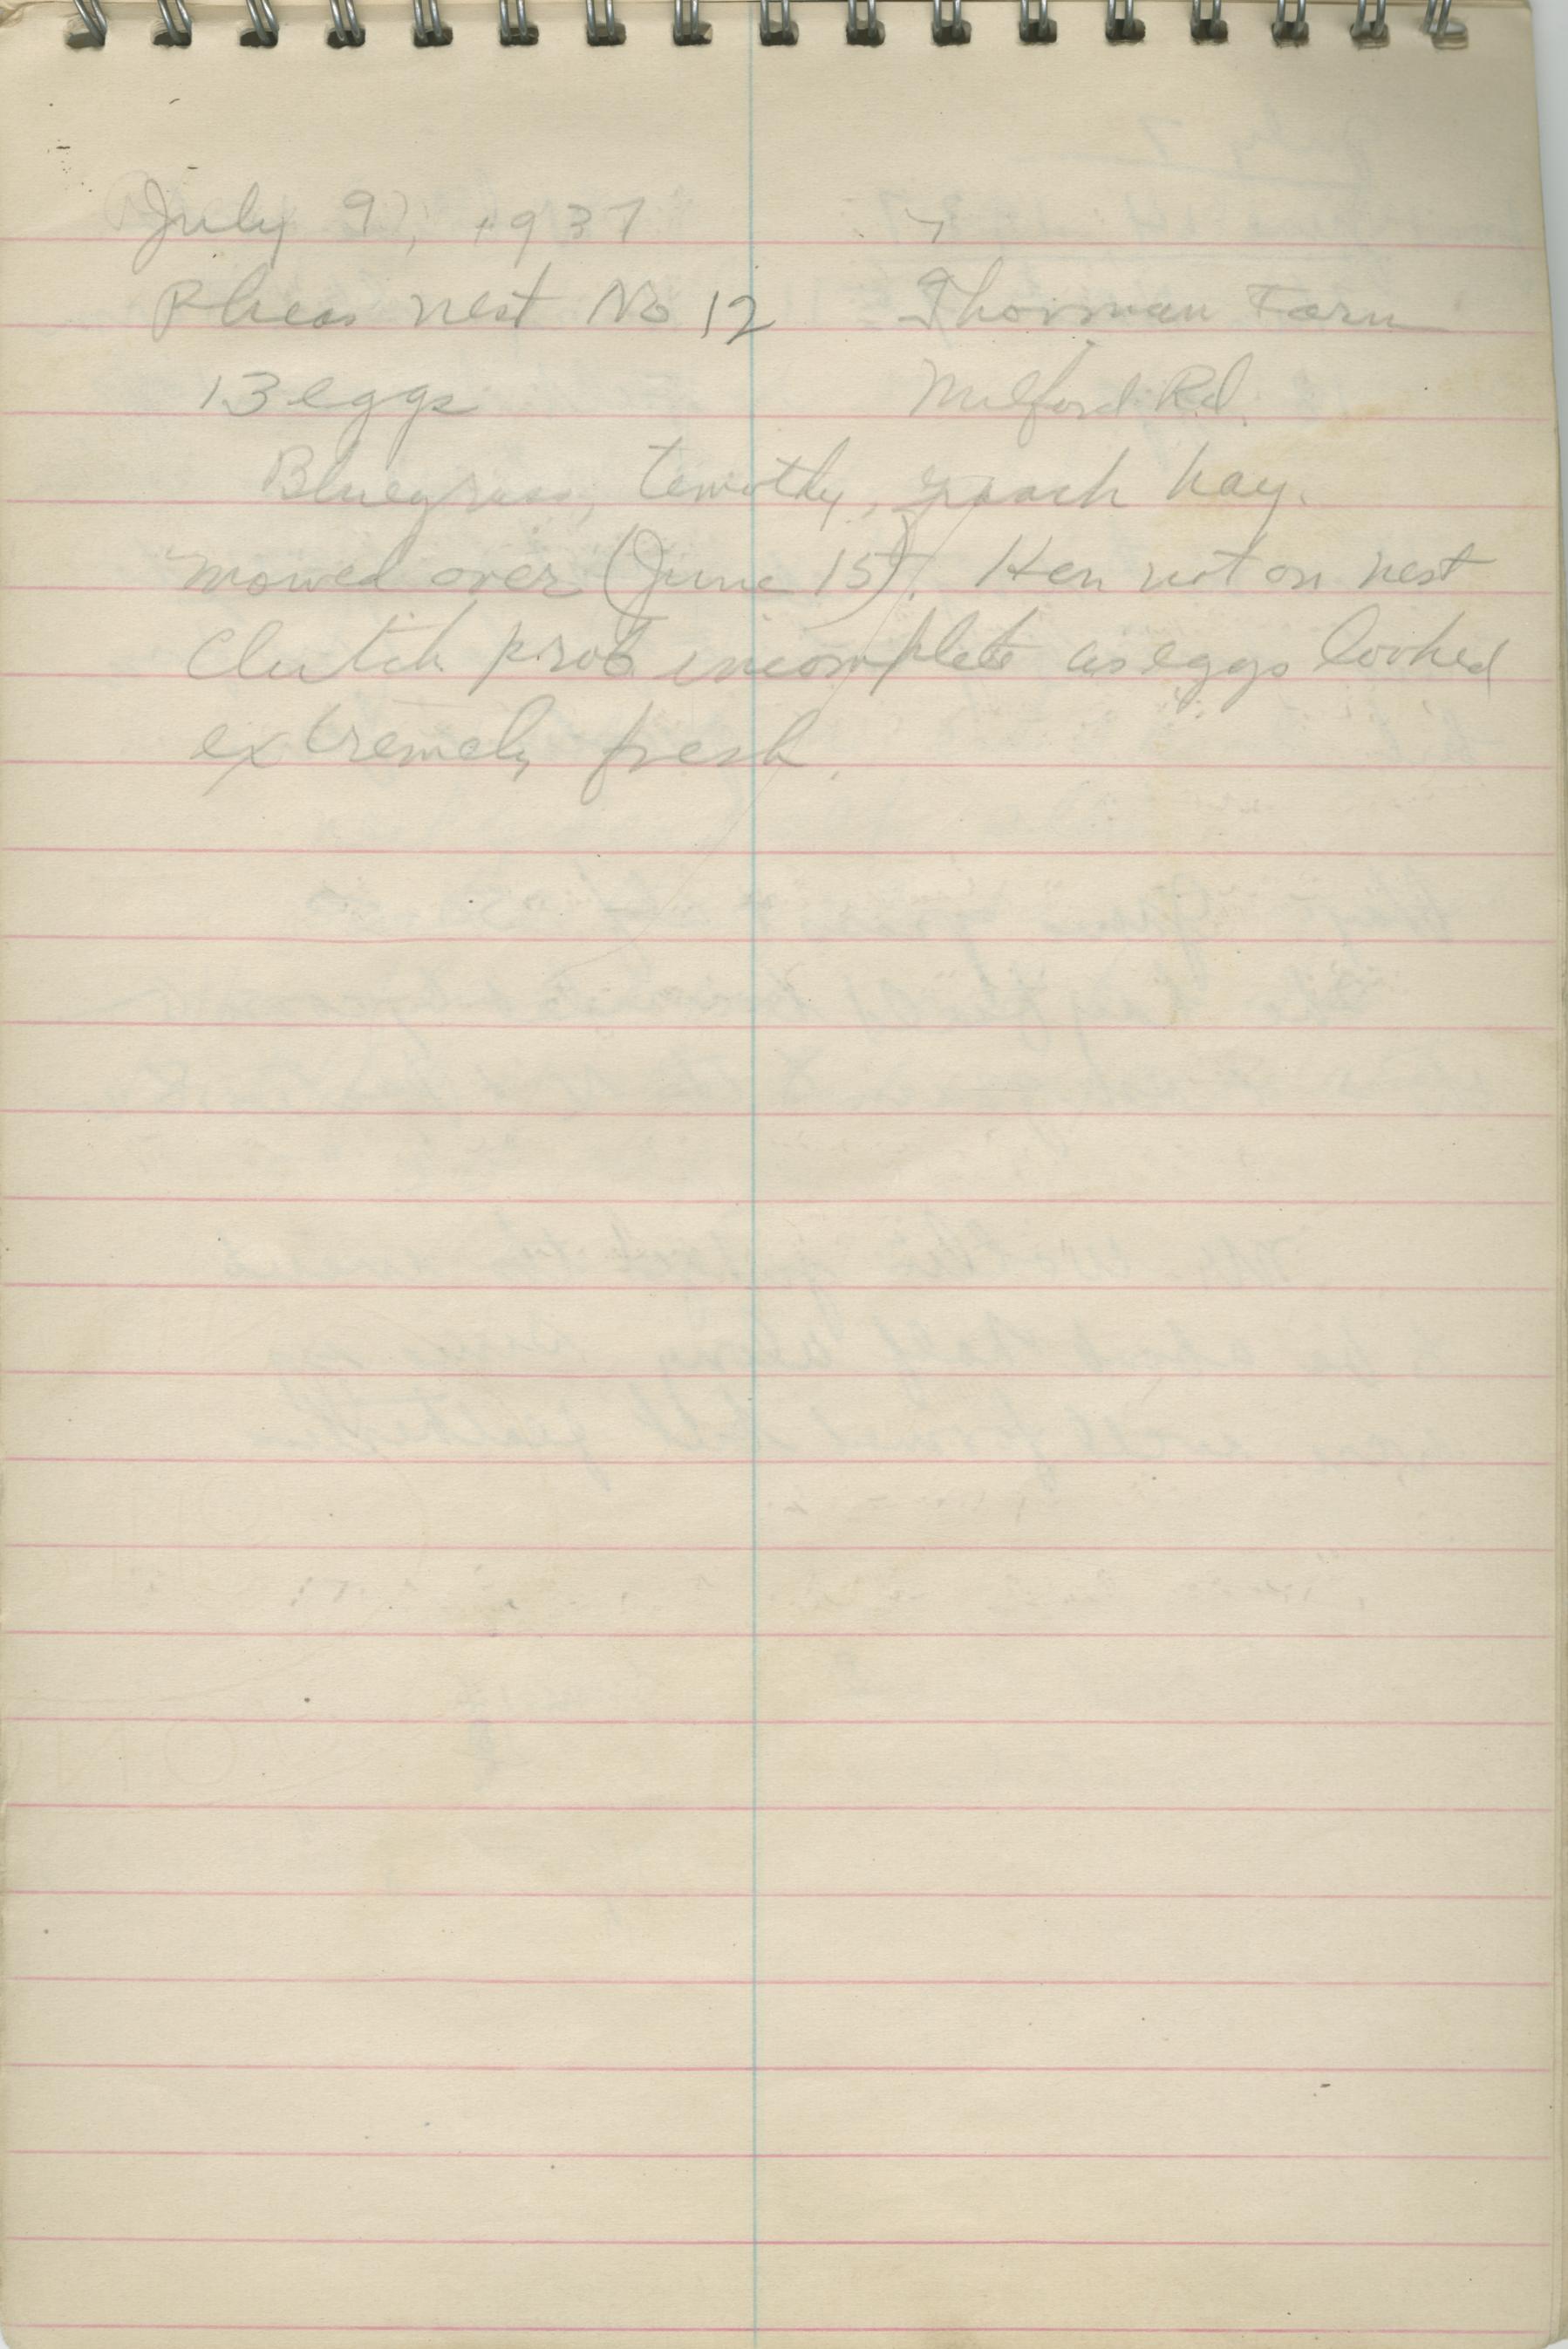 July 9, 1937
Pheas nest No 12 Thorman Farm
13 eggs Milford Rd.
Bluegrass, timothy, hay.
mowed over (June 15). Hen not on nest
Clutch prob incomplete as eggs looked
extremely fresh.